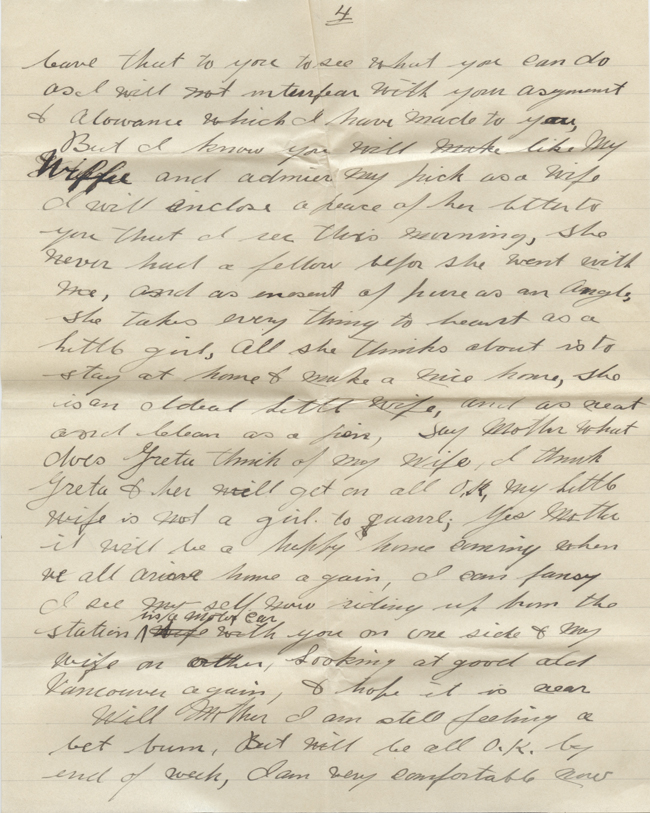 4
leave that to you to see what you can do
as I will not interfear with your asignment
& Alowance which I have made to you,
But I know you will make like My
Wiffie and admier my pick as a wife
I will inclose a peace of her letter to
you that I see this morning, she
never had a fellow befor she went with
me, and as enosent of pure as an Angle,
she takes every thing to heart as a
little girl, All she thinks about is to
stay at home & make a nice home, she
is an Ideal little wife, and as neat
and clean as a pin, say Mother what
does Greta think of my wife, I think
Greta & her will get on all O.K, my little
wife is not a girl to quarrel; Yes Mother
it will be a happy home coming when
we all arive home again, I can fancy
I see my self now riding up from the
in a motor car
station with you on one side & my
wife on other, Looking at good old
Vancouver again, & hope it is near
Will Mother I am still feeling a
bet bum, But will be all O.K. by
end of week, I am very comfortable now